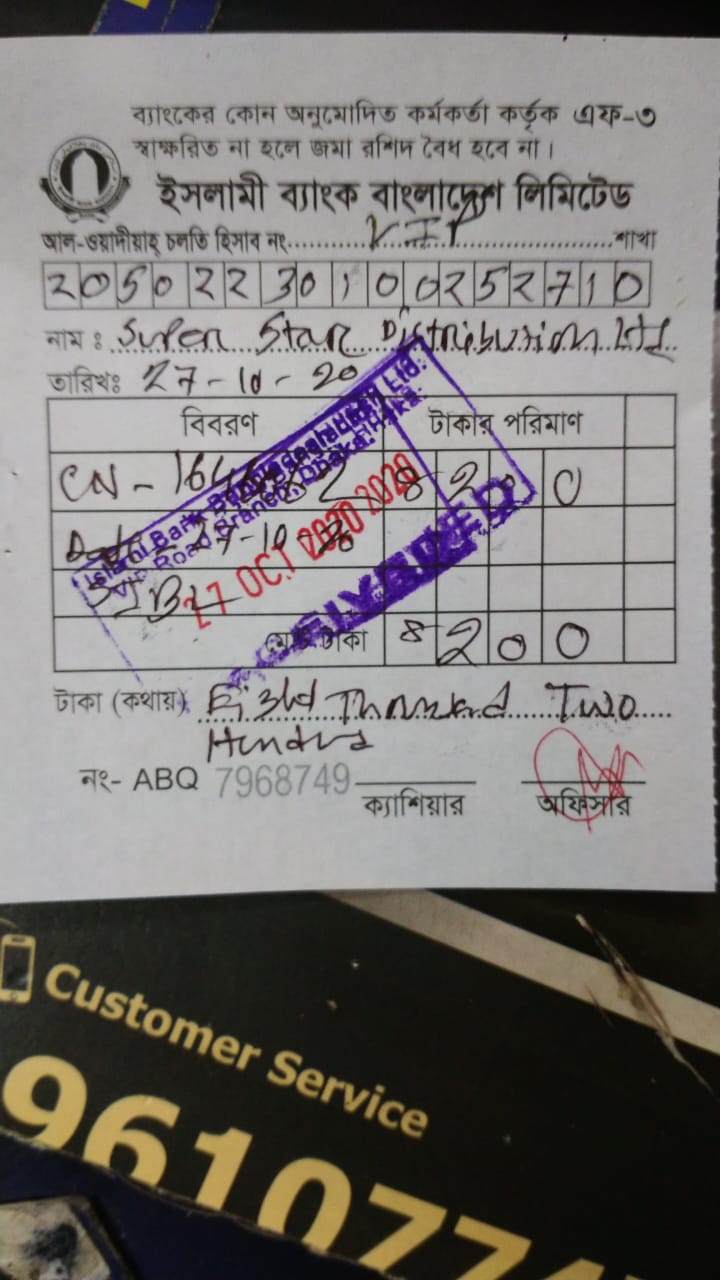 ব্যাংকের কোন অনুমোদিত কর্মকর্তা কর্তৃক এফ-৩
স্বাক্ষরিত না হলে জমা রশিদ বৈধ হবে না।
ইসলামী ব্যাংক বাংলাদেশ লিমিটেড
আল-ওয়াদীয়াহ্ চলতি হিসাব নং..........VIP..........শাখা
20502230100252710
নাম : Super Star Distribution Ltd.
তারিখঃ 27-10-20
বিবরণ টাকার পরিমাণ
CN - 8200
Date - 27-10-20
SJBL
মোট টাকা 8200
Islami Bank Bangladesh Ltd.
VIP Road Branch, Dhaka.
27 OCT 2020 2020
টাকা (কথায়) Eight Thousand Two
Hundred
নং- ABQ 7968749
ক্যাশিয়ার অফিসার
Customer Service
961077